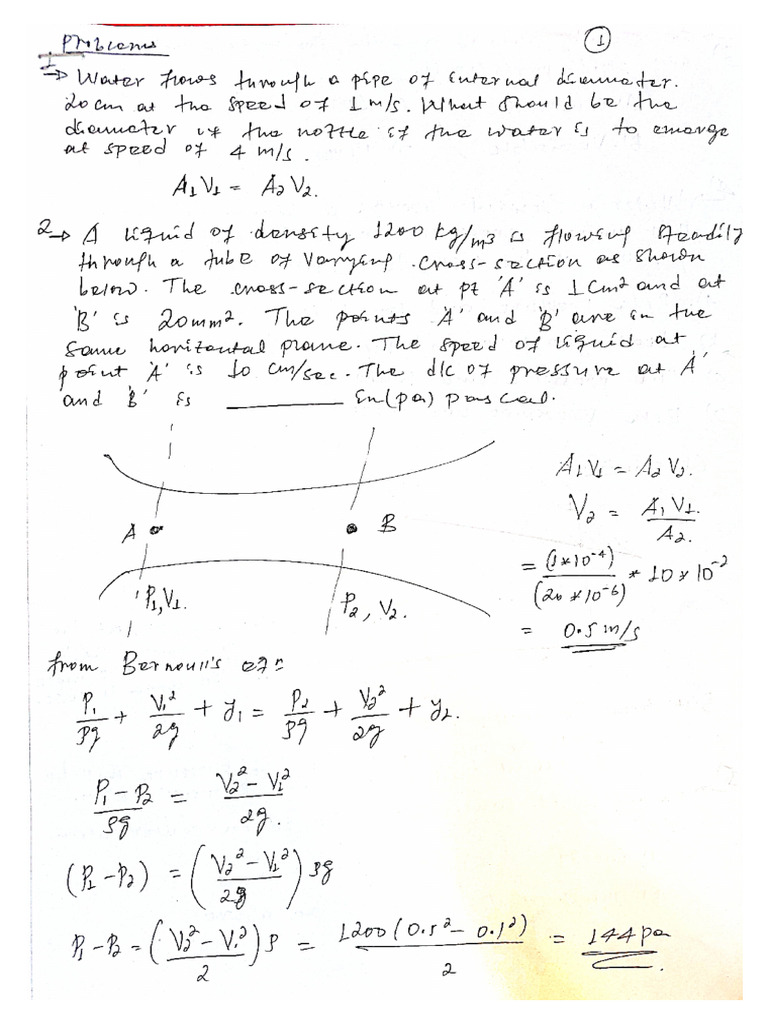 Problems
①
1
→ Water flows through a pipe of internal diameter.
20cm at the speed of 1 m/s. What should be the
diameter if the nozzle if the water is to emerge
at speed of 4 m/s.
A₁V₁ = A₂V₂.
2→ A liquid of density 1200 kg/m3 is flowing steadily
through a tube of varying cross-section as shown
below. The cross-section at pt 'A' is 1cm² and at
'B' is 20mm². The points 'A' and 'B' are in the
same horizontal plane. The speed of liquid at
point 'A' is 10 cm/sec. The d/c of pressure at A'
and 'B' is ________ in(pa) pascal.
A
B
P₁,V₁.
P₂, V₂.
A₁V₁ = A₂V₂.
V₂ = A₁V₁. / A₂.
= (1*10⁻⁴) / (20*10⁻⁶) * 10*10⁻²
= 0.5 m/s
from Bernoull's eqn
P₁/ρg + V₁²/2g + y₁ = P₂/ρg + V₂²/2g + y₂.
P₁-P₂/ρg = V₂²-V₁²/2g.
(P₁-P₂) = (V₂²-V₁²/2g) ρg
P₁-P₂ = (V₂²-V₁²/2) ρ = 1200(0.5²-0.1²)/2 = 144pa.